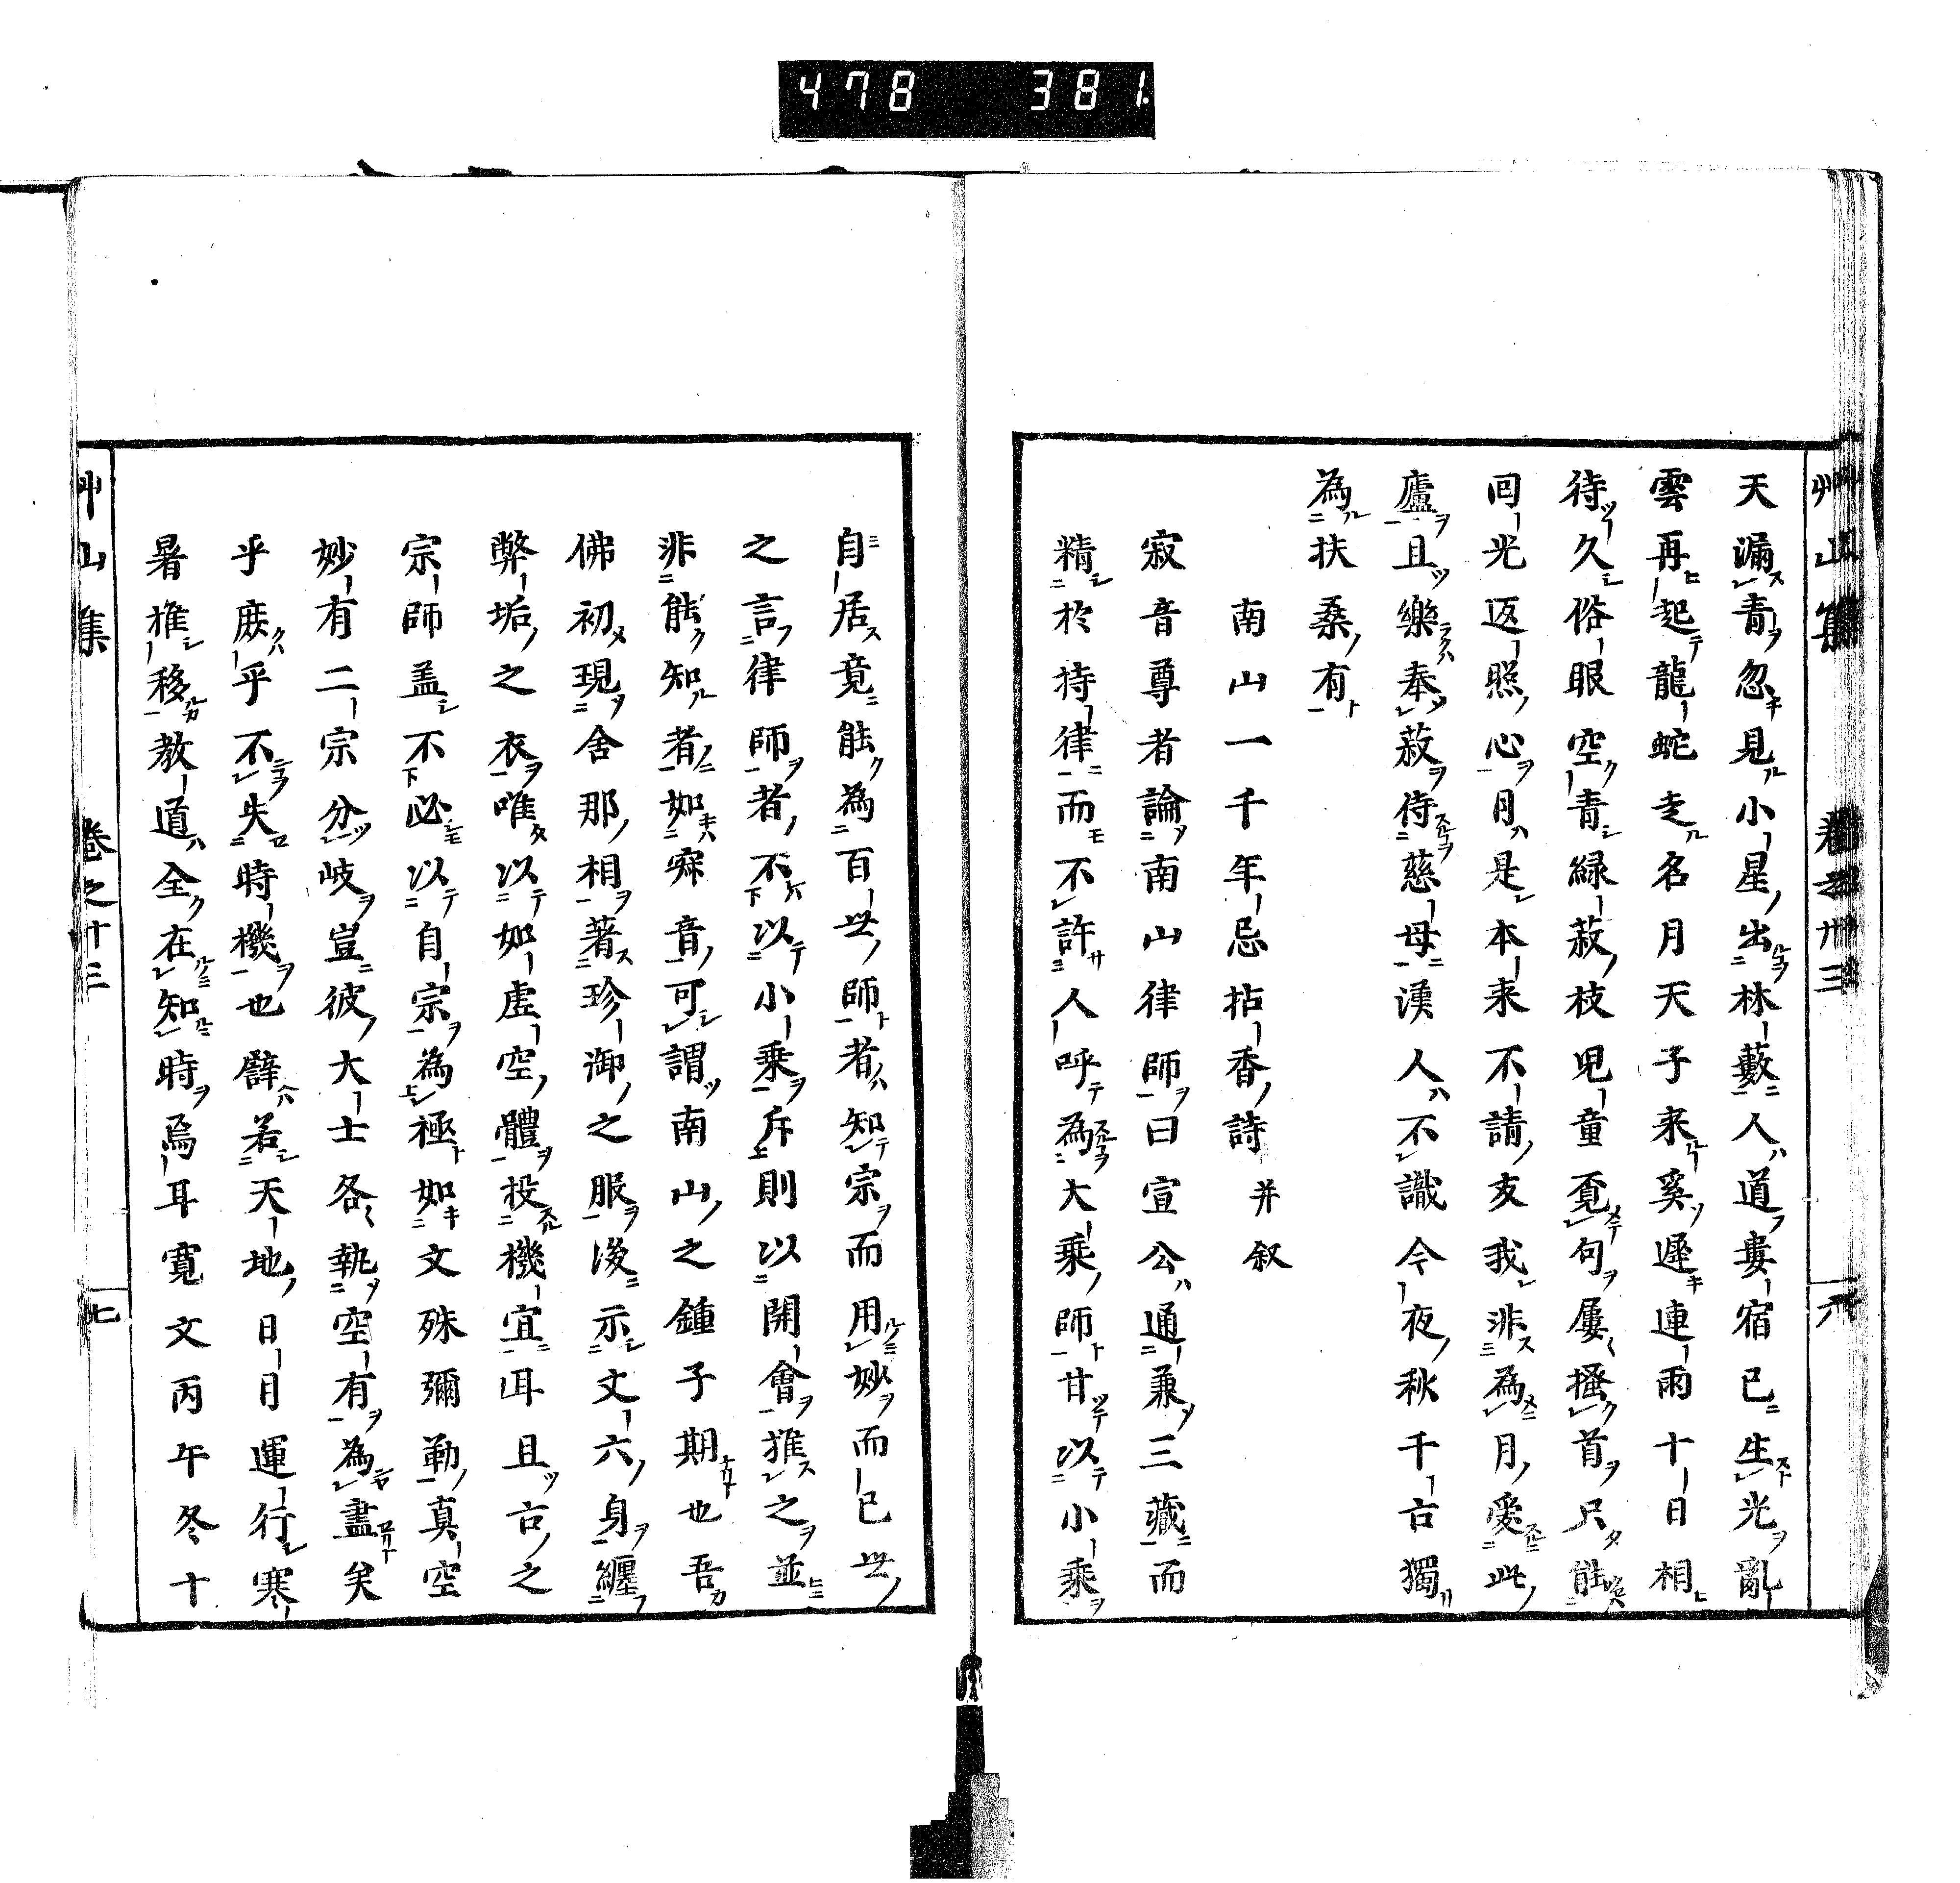 478 381
艸山集 卷之廿三 六
天漏青忽見小星出林藪人道婁宿已生光亂
雲再起龍蛇走名月天子来奚遲連雨十日相
待久俗眼空青緑菽枝児童覓句屢搔首只能
回光返照心月是本来不請友我非為月愛此
廬且樂奉菽侍慈母漢人不識今夜秋千古獨
為扶桑有
南山一千年忌拈香詩并叙
寂音尊者論南山律師曰宣公通兼三藏而
精於持律而不許人呼為大乘師甘以小乘
自居竟能為百世師者知宗而用妙而已世
之言律師者不以小乘斥則以開會推之並
非能知者如寂音可謂南山之鍾子期也吾
佛初現舍那相著珍御之服後示丈六身纏
弊垢之衣唯以如虛空體投機宜耳且古之
宗師盖不必以自宗為極如文殊彌勒真空
妙有二宗分岐豈彼大士各執空有為盡矣
乎庶乎不失時機也譬若天地日月運行寒
暑推移教道全在知時焉耳寛文丙午冬十
艸山集 卷之廿三 七